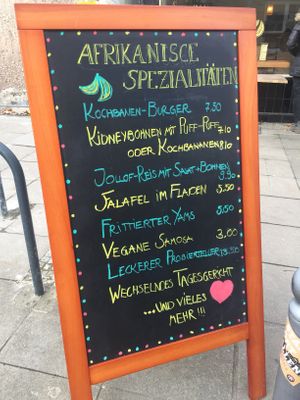 AFRIKANISCE
SPEZIALITÄTEN
KOCHBANEN-BURGER 7.50
KIDNEYBOHNEN MIT PUFF-PUFF 7.10
ODER KOCHBANANEN 8.10
JOLLOF-REIS MIT SALAT+BOHNEN
9.90
FALAFEL IM FLADEN 5.50
FRITTIERTER YAMS 5.50
VEGANE SAMOSA 3.00
LECKERER PROBIERTELLER 13.50
WECHSELNDES TAGESGERICHT
...UND VIELES
MEHR!!!